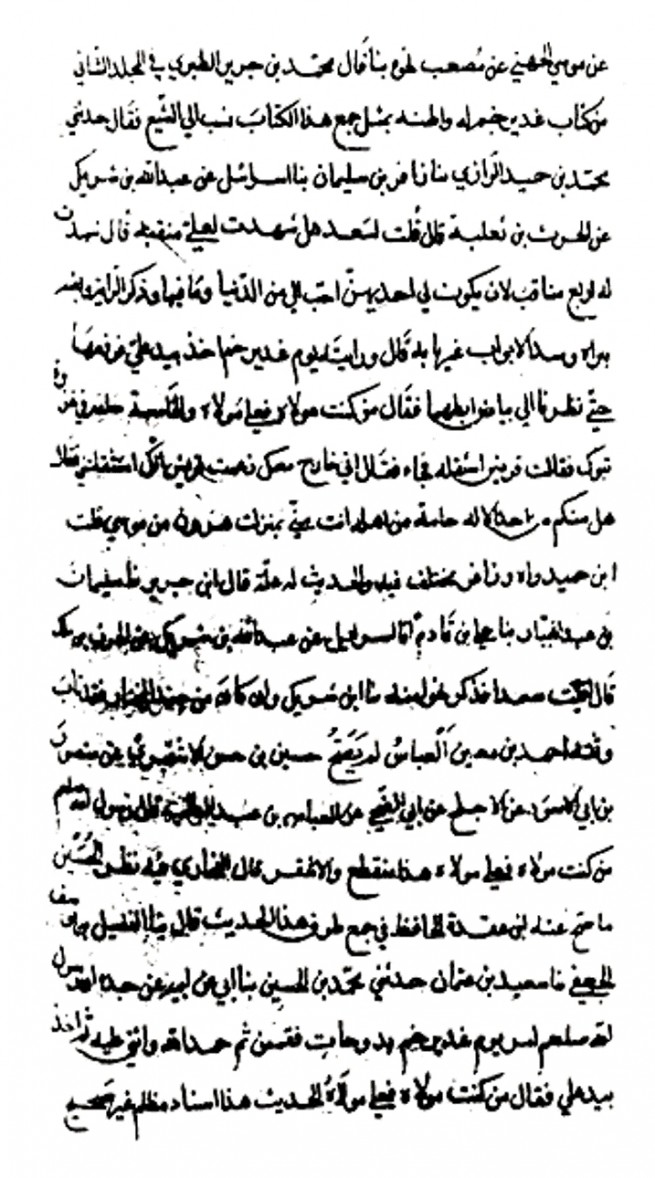 عن موسى الجهني عن مصعب نحوه بنا قال محمد بن جرير الطبري في المجلد الثاني
من كتاب غدير خم له والهنه بمثل جمع هذا الكتاب نسب الى التشيع فقال حدثني
محمد بن حميد الرازي بنا زافر بن سليمان بنا اسرائيل عن عبدالله بن شريك
عن الحرث بن ثعلبة قال قلت لسعد هل شهدت لعلي منقبة قال شهدت
له اربع مناقب لان يكون لي احديهن احب الي من الدنيا وما فيها وذكر الراية وبعثه
ببراه وسد الابواب غيربابه قال ورايته يوم غدير خم اخذ بيد علي فرفعها
حتى نظرنا الى بياض ابطيهما فقال من كنت مولاه فعلي مولاه والخامسة خلفه في غزوة
تبوك فقالت قريش استثقله فجاء فقال اني خارج معك زعمت قريش انك استثقلتني فقال
هل منكم احد الا له حامة من اهله انت مني بمنزلة هرون من موسى قلت
ابن حميد واه وزافر مختلف فيه والحديث له علة قال ابن جرير سليمان
بن عبد الجبار بنا علي بن قادم انا اسرائيل عن عبدالله بن شريك عن الحرث بن ملك
قال لقيت سعدا فذكر نحوه منه بنا ابن شريك وان كان من
وثقه احمد بن معين العباس لم يصح حسين بن حسن الاشقر عن منصور
بن ابي الاسود عن الاجلح عن ابي عن العباس بن عبد المطلب قال رسول الله صلعم
من كنت مولاه فعلي مولاه هذا منقطع والاشقر قال البخاري فيه نظر الحسين
ما صح عنه ابن عقدة الحافظ في جمع طرق هذا الحديث قال بنا الفضيل بن يوسف
الجعفي بنا سعيد بن عثمان حدثني محمد بن الحسين بنا ابي عن ابيه عن جده امر رسول
الله صلعم يوم غدير خم بدوحات فقممن ثم حمد الله واثنى عليه ثم اخذ
بيد علي فقال من كنت مولاه فعلي مولاه الحديث هذا اسناد مظلم غير صحيح